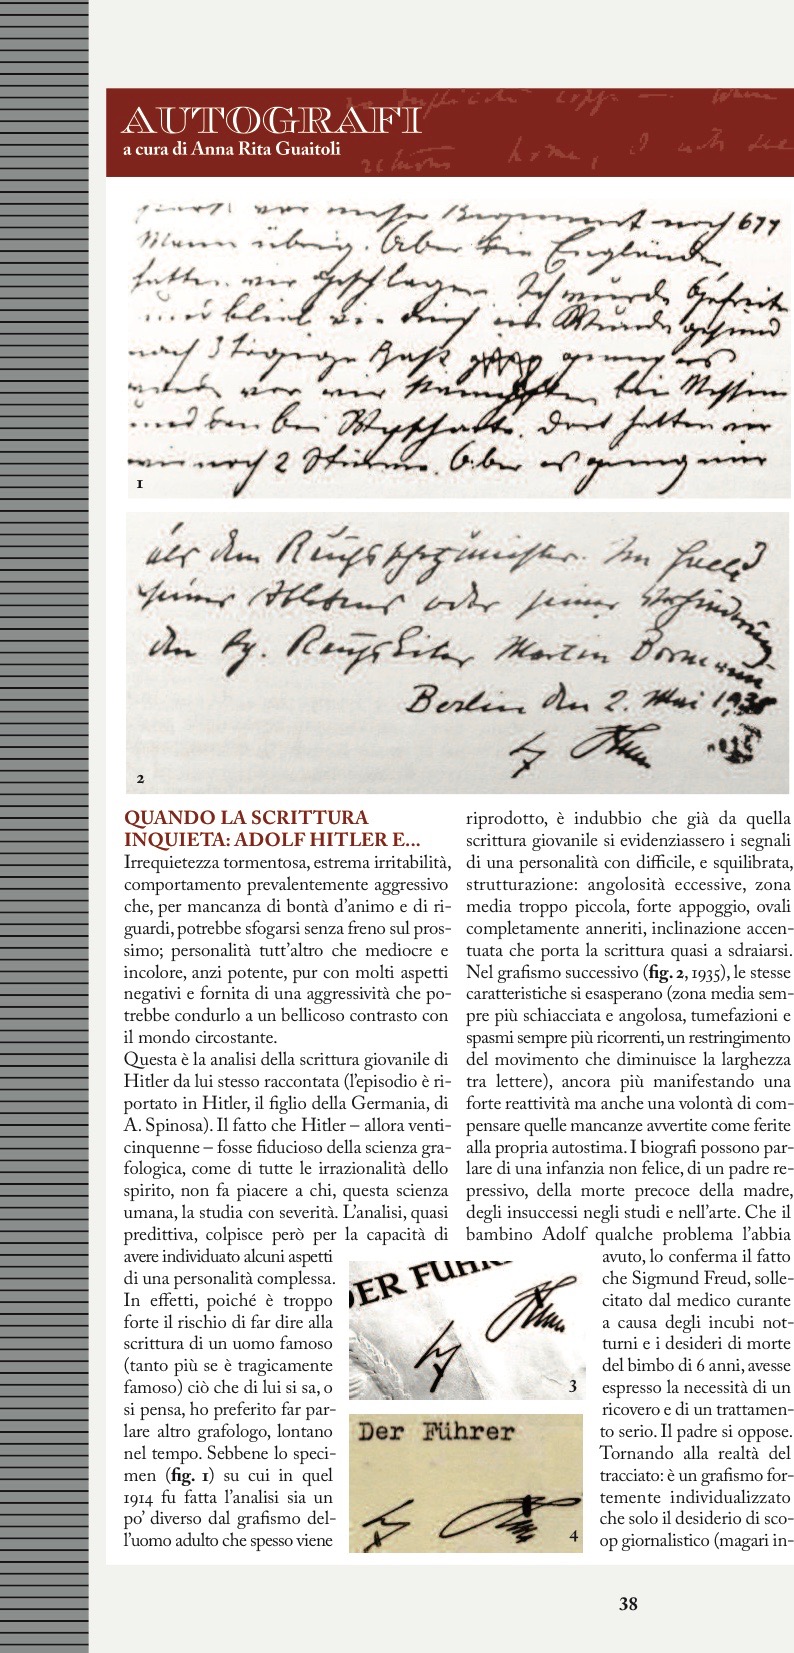 AUTOGRAFI
a cura di Anna Rita Guaitoli
vor unser Regiment noch 611
Mann übrig. Aber die Engländer
hatten wir geschlagen. Ich wurde Gefreiter
und blieb wie durch ein Wunder gesund
nach 3 tägiger Rast ging es
wir kämpften bei Messines
und dann bei Wytschaete. Dort hatten wir
wir noch 2 Stürme. Aber es ging mir
1
als dem Reichsschatzminister. Im Falle
seines Ablebens oder seiner Verhinderung
den Pg. Reichsleiter Martin Bormann
Berlin den 2. Mai 1938
2
QUANDO LA SCRITTURA
INQUIETA: ADOLF HITLER E...
Irrequietezza tormentosa, estrema irritabilità,
comportamento prevalentemente aggressivo
che, per mancanza di bontà d'animo e di ri-
guardi, potrebbe sfogarsi senza freno sul pros-
simo; personalità tutt'altro che mediocre e
incolore, anzi potente, pur con molti aspetti
negativi e fornita di una aggressività che po-
trebbe condurlo a un bellicoso contrasto con
il mondo circostante.
Questa è la analisi della scrittura giovanile di
Hitler da lui stesso raccontata (l'episodio è ri-
portato in Hitler, il figlio della Germania, di
A. Spinosa). Il fatto che Hitler – allora venti-
cinquenne – fosse fiducioso della scienza gra-
fologica, come di tutte le irrazionalità dello
spirito, non fa piacere a chi, questa scienza
umana, la studia con severità. L'analisi, quasi
predittiva, colpisce però per la capacità di
avere individuato alcuni aspetti
di una personalità complessa.
In effetti, poiché è troppo
forte il rischio di far dire alla
scrittura di un uomo famoso
(tanto più se è tragicamente
famoso) ciò che di lui si sa, o
si pensa, ho preferito far par-
lare altro grafologo, lontano
nel tempo. Sebbene lo speci-
men (fig. 1) su cui in quel
1914 fu fatta l'analisi sia un
po' diverso dal grafismo del-
l'uomo adulto che spesso viene
riprodotto, è indubbio che già da quella
scrittura giovanile si evidenziassero i segnali
di una personalità con difficile, e squilibrata,
strutturazione: angolosità eccessive, zona
media troppo piccola, forte appoggio, ovali
completamente anneriti, inclinazione accen-
tuata che porta la scrittura quasi a sdraiarsi.
Nel grafismo successivo (fig. 2, 1935), le stesse
caratteristiche si esasperano (zona media sem-
pre più schiacciata e angolosa, tumefazioni e
spasmi sempre più ricorrenti, un restringimento
del movimento che diminuisce la larghezza
tra lettere), ancora più manifestando una
forte reattività ma anche una volontà di com-
pensare quelle mancanze avvertite come ferite
alla propria autostima. I biografi possono par-
lare di una infanzia non felice, di un padre re-
pressivo, della morte precoce della madre,
degli insuccessi negli studi e nell'arte. Che il
bambino Adolf qualche problema l'abbia
avuto, lo conferma il fatto
che Sigmund Freud, solle-
citato dal medico curante
a causa degli incubi not-
turni e i desideri di morte
del bimbo di 6 anni, avesse
espresso la necessità di un
ricovero e di un trattamen-
to serio. Il padre si oppose.
Tornando alla realtà del
tracciato: è un grafismo for-
temente individualizzato
che solo il desiderio di sco-
op giornalistico (magari in-
DER FÜHR
3
Der Führer
4
38